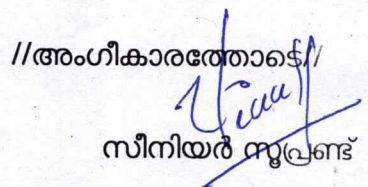 //അംഗീകാരത്തോടെ//
സീനിയർ സൂപ്രണ്ട്